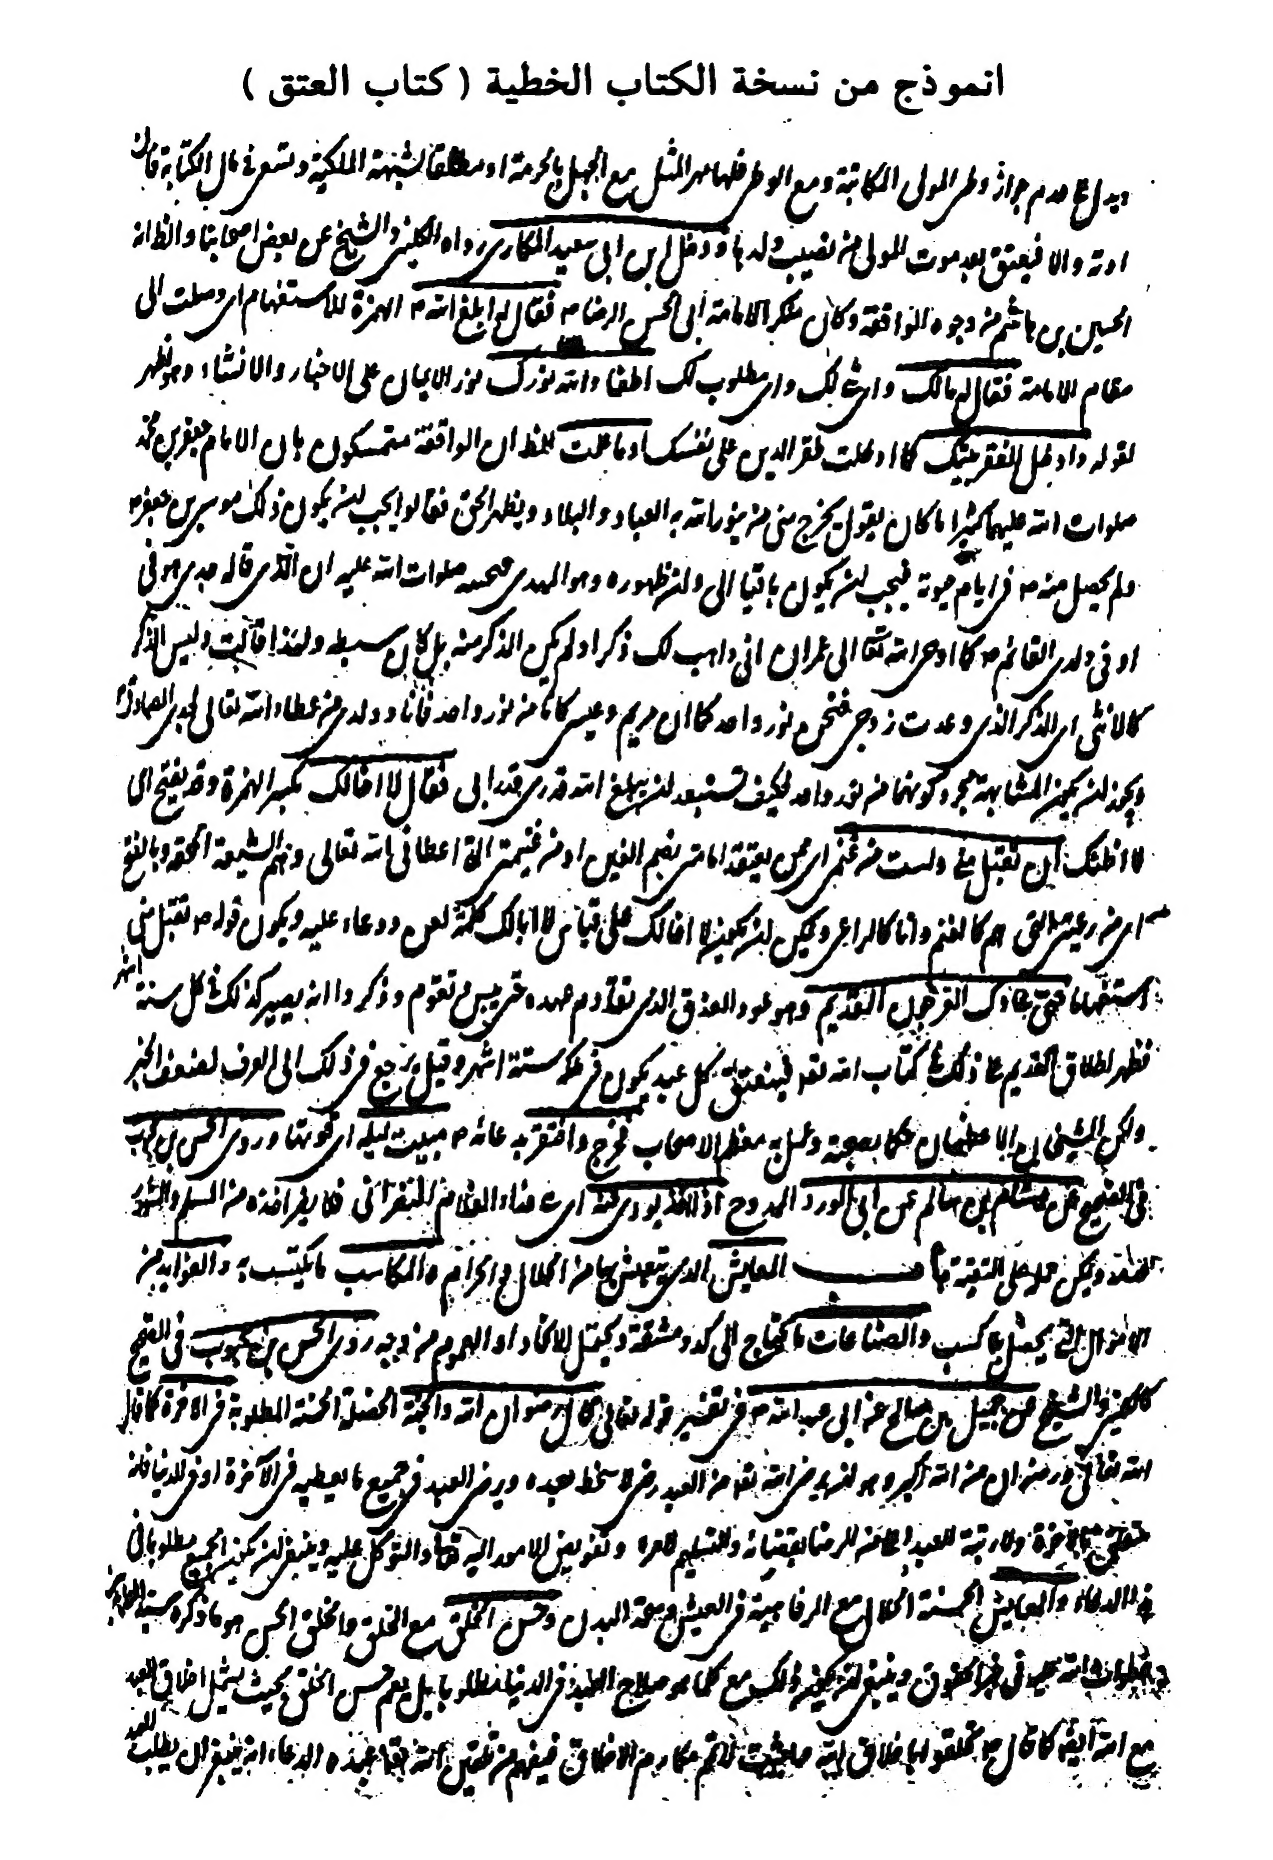 انموذج من نسخة الكتاب الخطية ( كتاب العتق )
ويدل على عدم جواز وطى المولى المكاتبة ومع الوطى فلها مهر المثل مع الجهل بالحرمة او مطلقا لشبهة الملكية وتسعى فى مال الكتابة فان
ادته والا فينعتق بعد موت المولى من نصيب ولدها ودخل ابن ابى سعيد المكارى رواه الكلينى والشيخ عن بعض اصحابنا والظ انه
الحسين بن هاشم من وجوه الواقفة وكان منكر الامامة ابى الحسن الرضا ص فقال له ابلغ الله م الهمزة للاستفهام اى وصلت الى
مقام الامامة فقال له مالك واى شئ لك واى مطلوب لك اطفا الله نورك نور الايمان على الاخبار والانشاء وهو اظهر
لقوله وادخل الفقر بيتك كما ادخلت فقر الدين على نفسك اوما علمت الظ ان الواقفة متمسكون بان الامام جعفر بن محمد
صلوات الله عليهما كثيرا ما كان يقول يخرج منى من ينور الله به العباد والبلاد ويظهر الحق فقالوا يجب ان يكون ذلك موسى بن جعفر ص
ولم يحصل منه ص فى ايام حيوته فيجب ان يكون باقيا الى ظهوره وهو المهدى صلوات الله عليه ان الذى قاله جدى هو فى
او فى ولدى القائم ص كما اوحى الله تعالى الى عمران انى واهب لك ذكرا ولم يكن الذكر منه بل كان سبطه ولهذا قالت وليس الذكر
كالانثى اى الذكر الذى وعدت زوجى فنحن نور واحد كما ان مريم وعيسى كانا من نور واحد فانا وولدى من عطاء الله تعالى لجدى الصادق
ويجوز ان يكون المشابهة مجرد كونهما من نور واحد فكيف تستبعد ان يبلغ الله قدرى قدر ابى فقال لا اخالك بكسر الهمزة وقد يفتح اى
لا اظنك ان تقبل منى ولست من غنمى اى ممن يعتقد امامتى بضم الغين او من غنيمتى التى اعطانى الله تعالى وهم الشيعة الحقة وبالفتح
اى من رعيتى التى هم كالغنم وانا كالراعى ويمكن ان يكون لا اخالك على قياس لا ابالك كلمة لعن ودعاء عليه ويكون قوله ص تقبل منى
استفهاما حتى عاد كالعرجون القديم وهو عود العذق الذى تقادم عهده حتى يبس وتقوم وذكروا انه يصير كذلك فى كل ستة اشهر
فظهر اطلاق القديم على ذلك فى كتاب الله تعالى فينعتق كل عبد يكون فى ملكه ستة اشهر وقيل يرجع فى ذلك الى العرف لضعف الخبر
ولكن الشيخان الاعظمان حكما بصحته وعمل به معظم الاصحاب فخرج وافتقر به عائه ص مبيت ليلة اى قوتها وروى الحسن بن محبوب
فى الصحيح عن هشام بن سالم عن ابى الورد الممدوح
العقد ويمكن حمله على التقية باب المعايش الذى يتعيش بها من الحلال والحرام والمكاسب ما يكتسب به والفوائد من
الاموال التى يحصل بالكسب والصناعات ما تحتاج الى كد ومشقة ويحتمل الاتحاد او العموم من وجه روى الحسن بن محبوب فى الصحيح
كالكلينى والشيخ عن جميل بن صالح عن ابى عبد الله ص فى تفسير قوله تعالى قال رضوان الله والجنة الحسنة المطلوبة فى الاخرة كما قال
الله تعالى ورضوان من الله اكبر وهو ان يرضى الله تعالى من العبد رضى لا سخط بعده ويرضى العبد فى جميع ما يعطيه فى الآخرة او فى الدنيا فانه
ولا رتبة للعبد اعلى من الرضا بقضائه والتسليم لامره وتفويض الامور اليه تعالى والتوكل عليه وينبغى ان يكون الجميع مطلوبا فى
هذا الدعاء والمعايش الحسنة الحلال مع الرفاهية فى العيش وصحة البدن وحسن الخلق مع الخلق والخلق الحسن هو ما ذكره سيد الساجدين
صلوات الله عليه فى خبر الحقوق وينبغى ان يكون ذلك مع كلما هو صلاح العبد فى الدنيا مطلوبا بل يعم حسن الخلق بحيث يشمل اخلاق العبد
مع الله ايضا كما قال ص تخلقوا باخلاق الله لاتمم مكارم الاخلاق فيفهم من هذه الدعاء انه ينبغى ان يطلب العبد